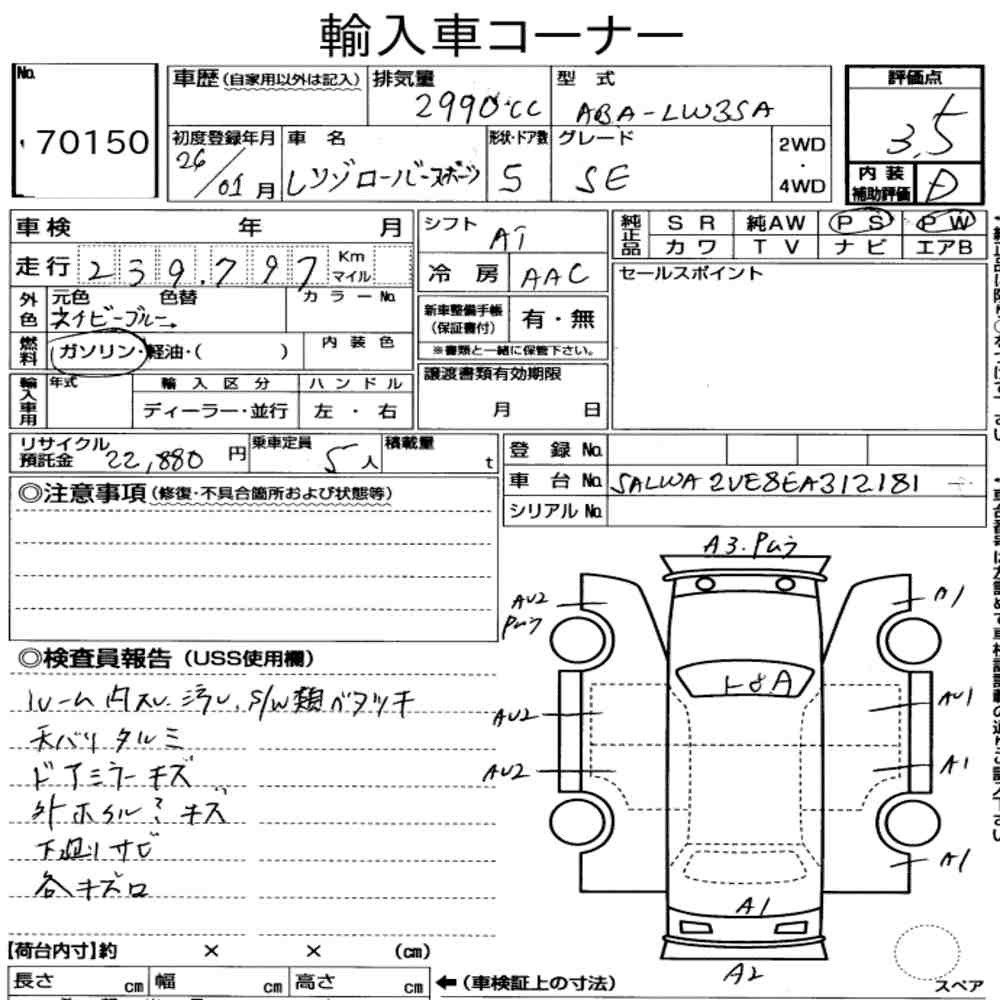 輸入車コーナー
No.
70150
車歴(自家用以外は記入) 排気量 2990cc 型式 ABA-LW3SA
初度登録年月 26/01月 車名 レンジローバースポーツ 形状・ドア数 5 グレード SE 2WD・4WD
評価点 3.5
内装補助評価 D
車検 年 月
走行 239.797 Km マイル
外色 元色 色替 ネイビーブルー カラーNo.
燃料 ガソリン・軽油・( ) 内装色
輸入車用 年式 輸入区分 ディーラー・並行 ハンドル 左・右
シフト AT
冷房 AAC
新車整備手帳(保証書付) 有・無
※書類と一緒に保管下さい。
譲渡書類有効期限
月 日
純正品 SR 純AW PS PW
カワ TV ナビ エアB
セールスポイント
リサイクル預託金 22,880円 乗車定員 5人 積載量 t
登録No.
車台No. SALWA2VE8EA312181
シリアルNo.
◎注意事項(修復・不具合箇所および状態等)
◎検査員報告(USS使用欄)
ルーム内スレ、汚レ、S/W類ベタツキ
天バリタルミ
ドアミラーキズ
外ホイル キズ
下廻りサビ
各キズロ
A3.Pムラ
AU2
Pムラ
A1
トバA
AU2
AU1
AU2
A1
A1
A1
A2
スペア
【荷台内寸】約 × × (cm)
長さ cm 幅 cm 高さ cm ←(車検証上の寸法)